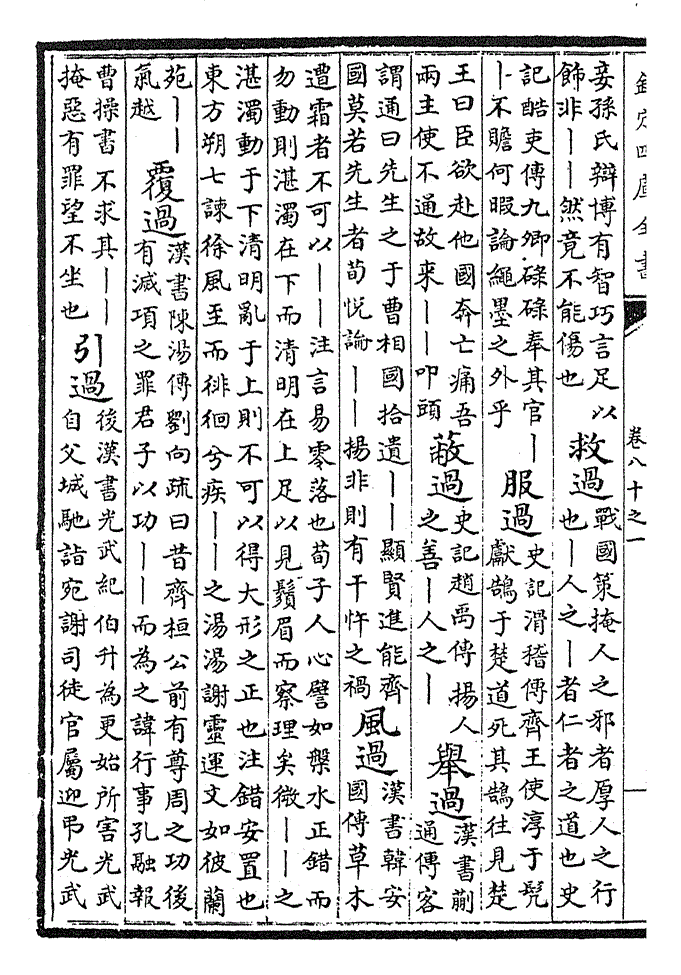 欽定四庫全書
卷八十之一
妾孫氏辯博有智巧言足以
飾非——然竟不能傷也
救過
戰國策掩人之邪者厚人之行
也—人之—者仁者之道也史
記酷吏傳九卿碌碌奉其官—
—不贍何暇論繩墨之外乎
服過
史記滑稽傳齊王使淳于髡
獻鵠于楚道死其鵠往見楚
王曰臣欲赴他國奔亡痛吾
兩主使不通故来——叩頭
蔽過
史記趙禹傳揚人
之善—人之—
舉過
漢書蒯
通傳客
謂通曰先生之于曹相國拾遺——顯賢進能齊
國莫若先生者荀悅論——揚非則有干忤之禍
風過
漢書韓安
國傳草木
遭霜者不可以——注言易零落也荀子人心譬如槃水正錯而
勿動則湛濁在下而清明在上足以見鬚眉而察理矣微——之
湛濁動于下清明亂于上則不可以得大形之正也注錯安置也
東方朔七諫徐風至而徘徊兮疾——之湯湯謝靈運文如彼蘭
苑——
氣越
覆過
漢書陳湯傳劉向疏曰昔齊桓公前有尊周之功後
有滅項之罪君子以功——而為之諱行事孔融報
曹操書不求其——
掩惡有罪望不坐也
引過
後漢書光武紀伯升為更始所害光武
自父城馳詣宛謝司徒官屬迎弔光武